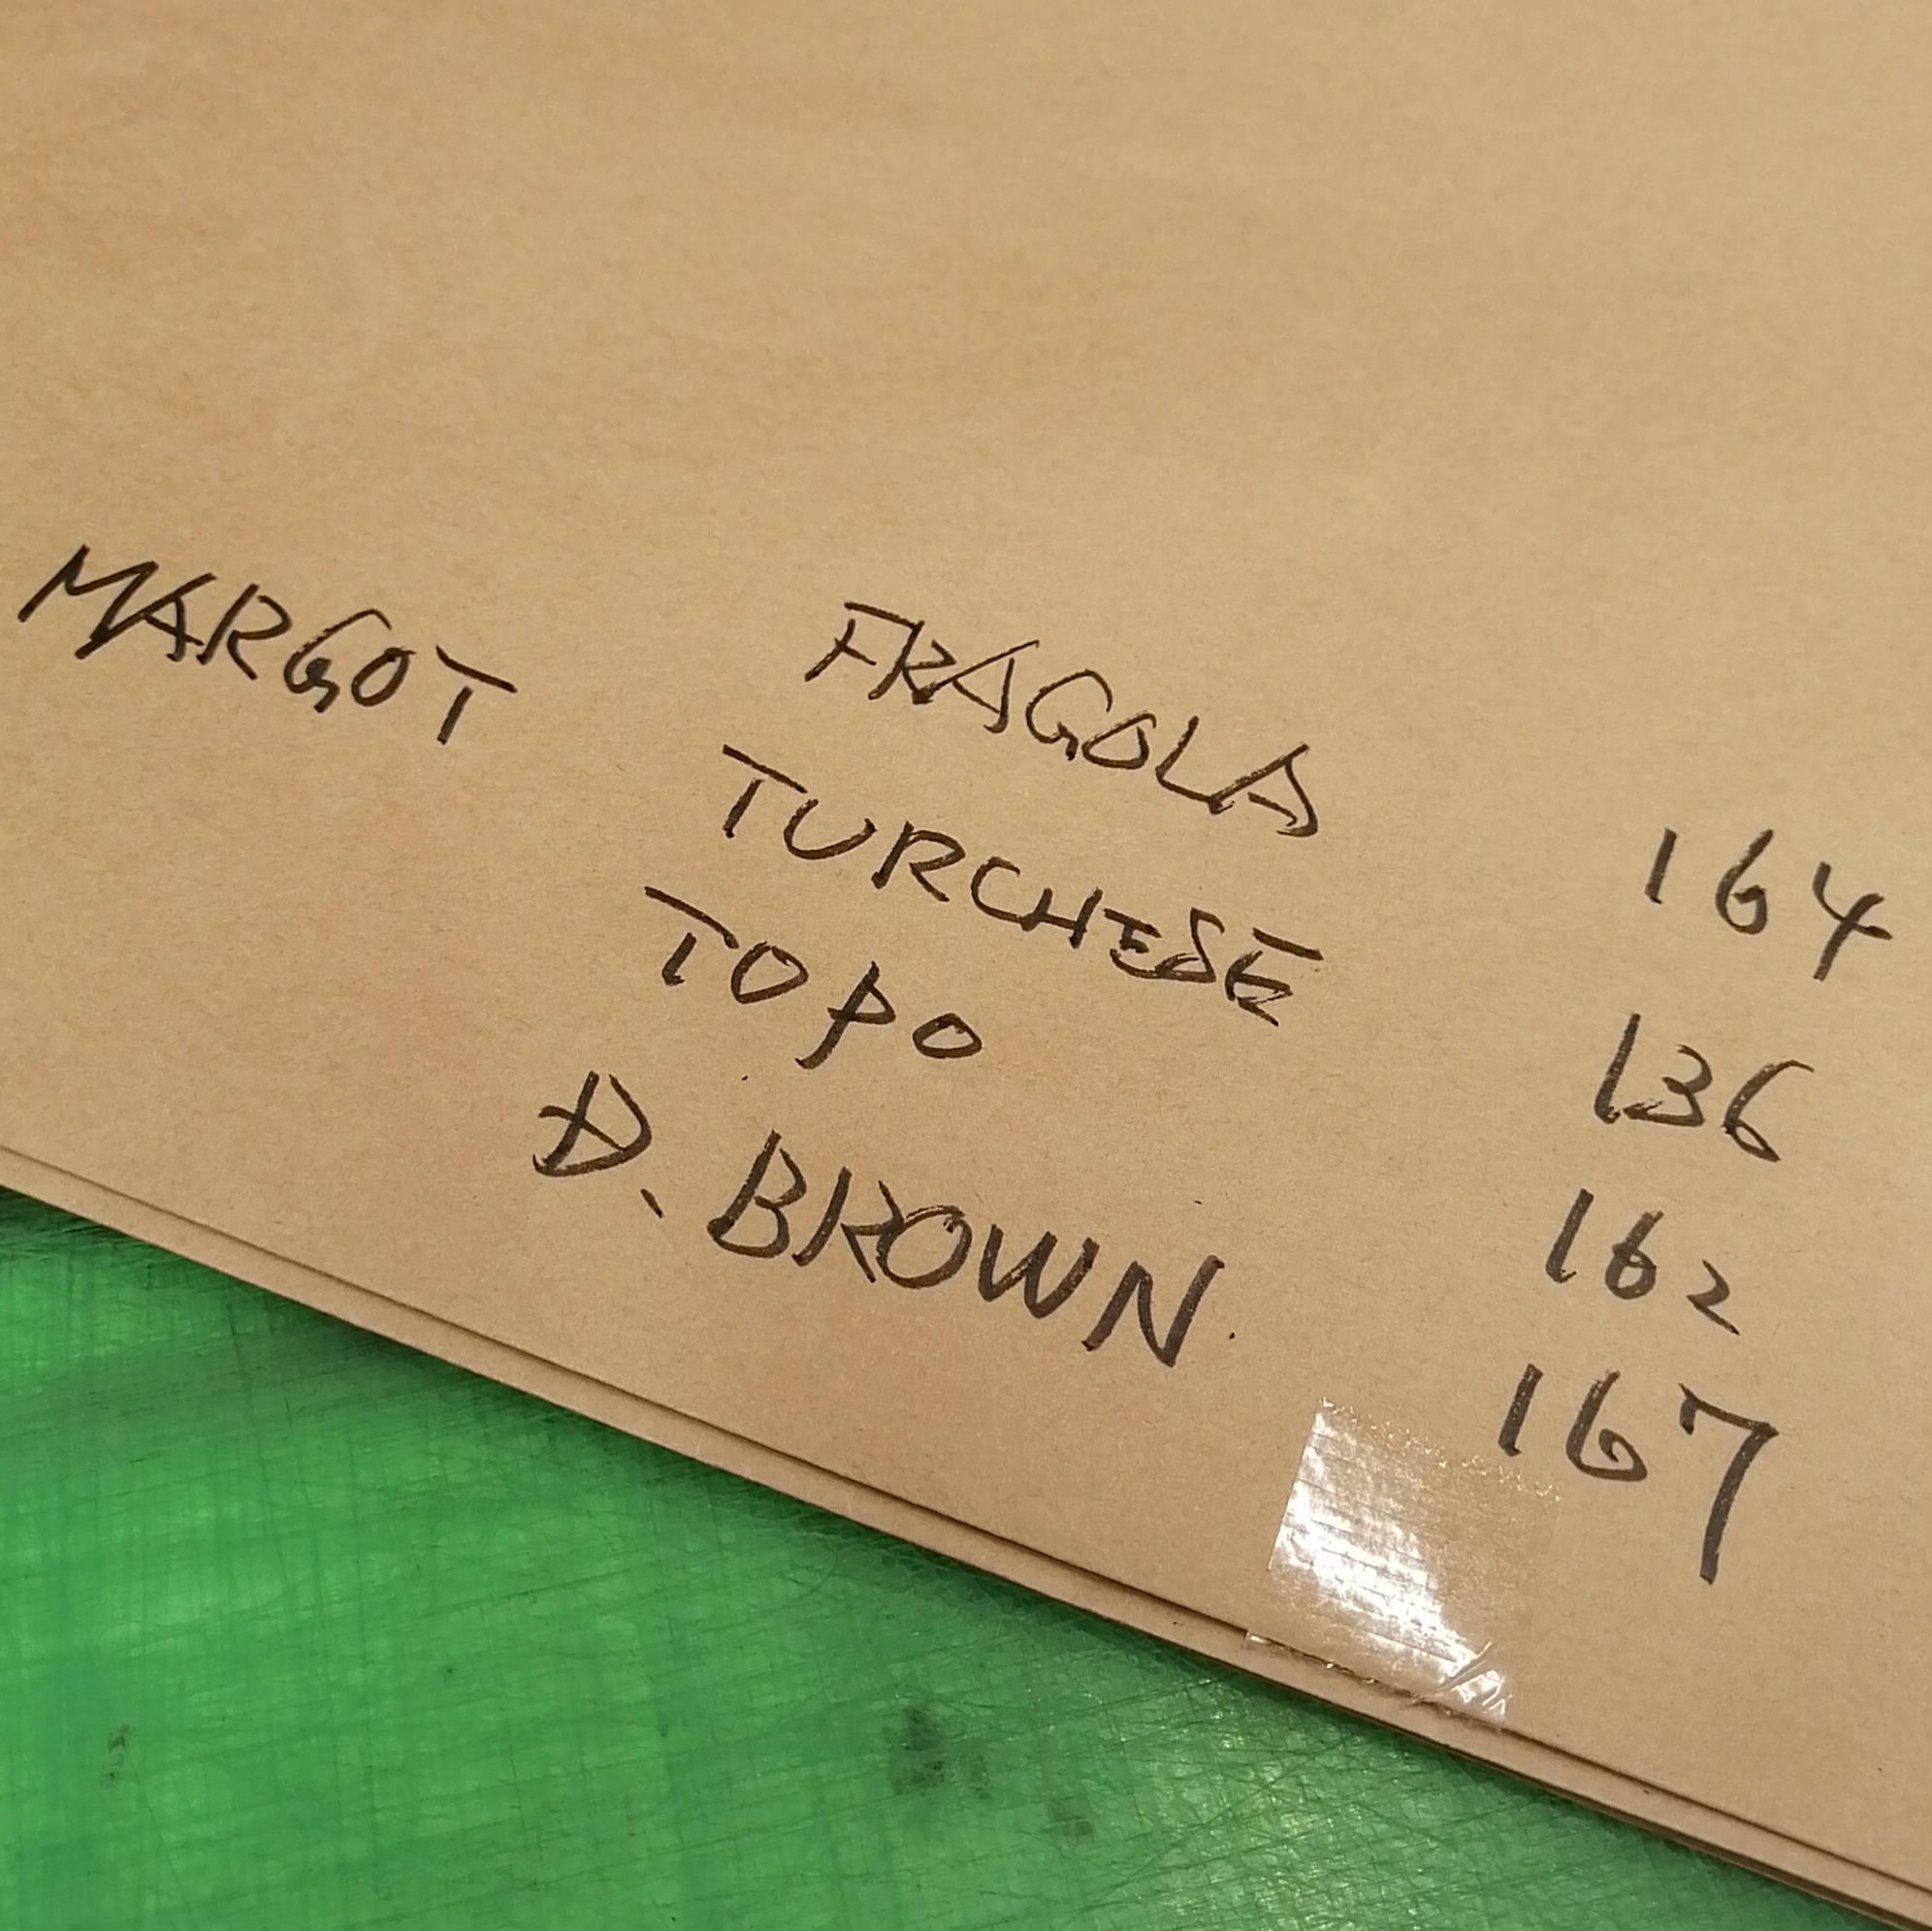 MARGOT FRAGOLA 164
TURCHESE 136
TOPO 162
D. BROWN. 167